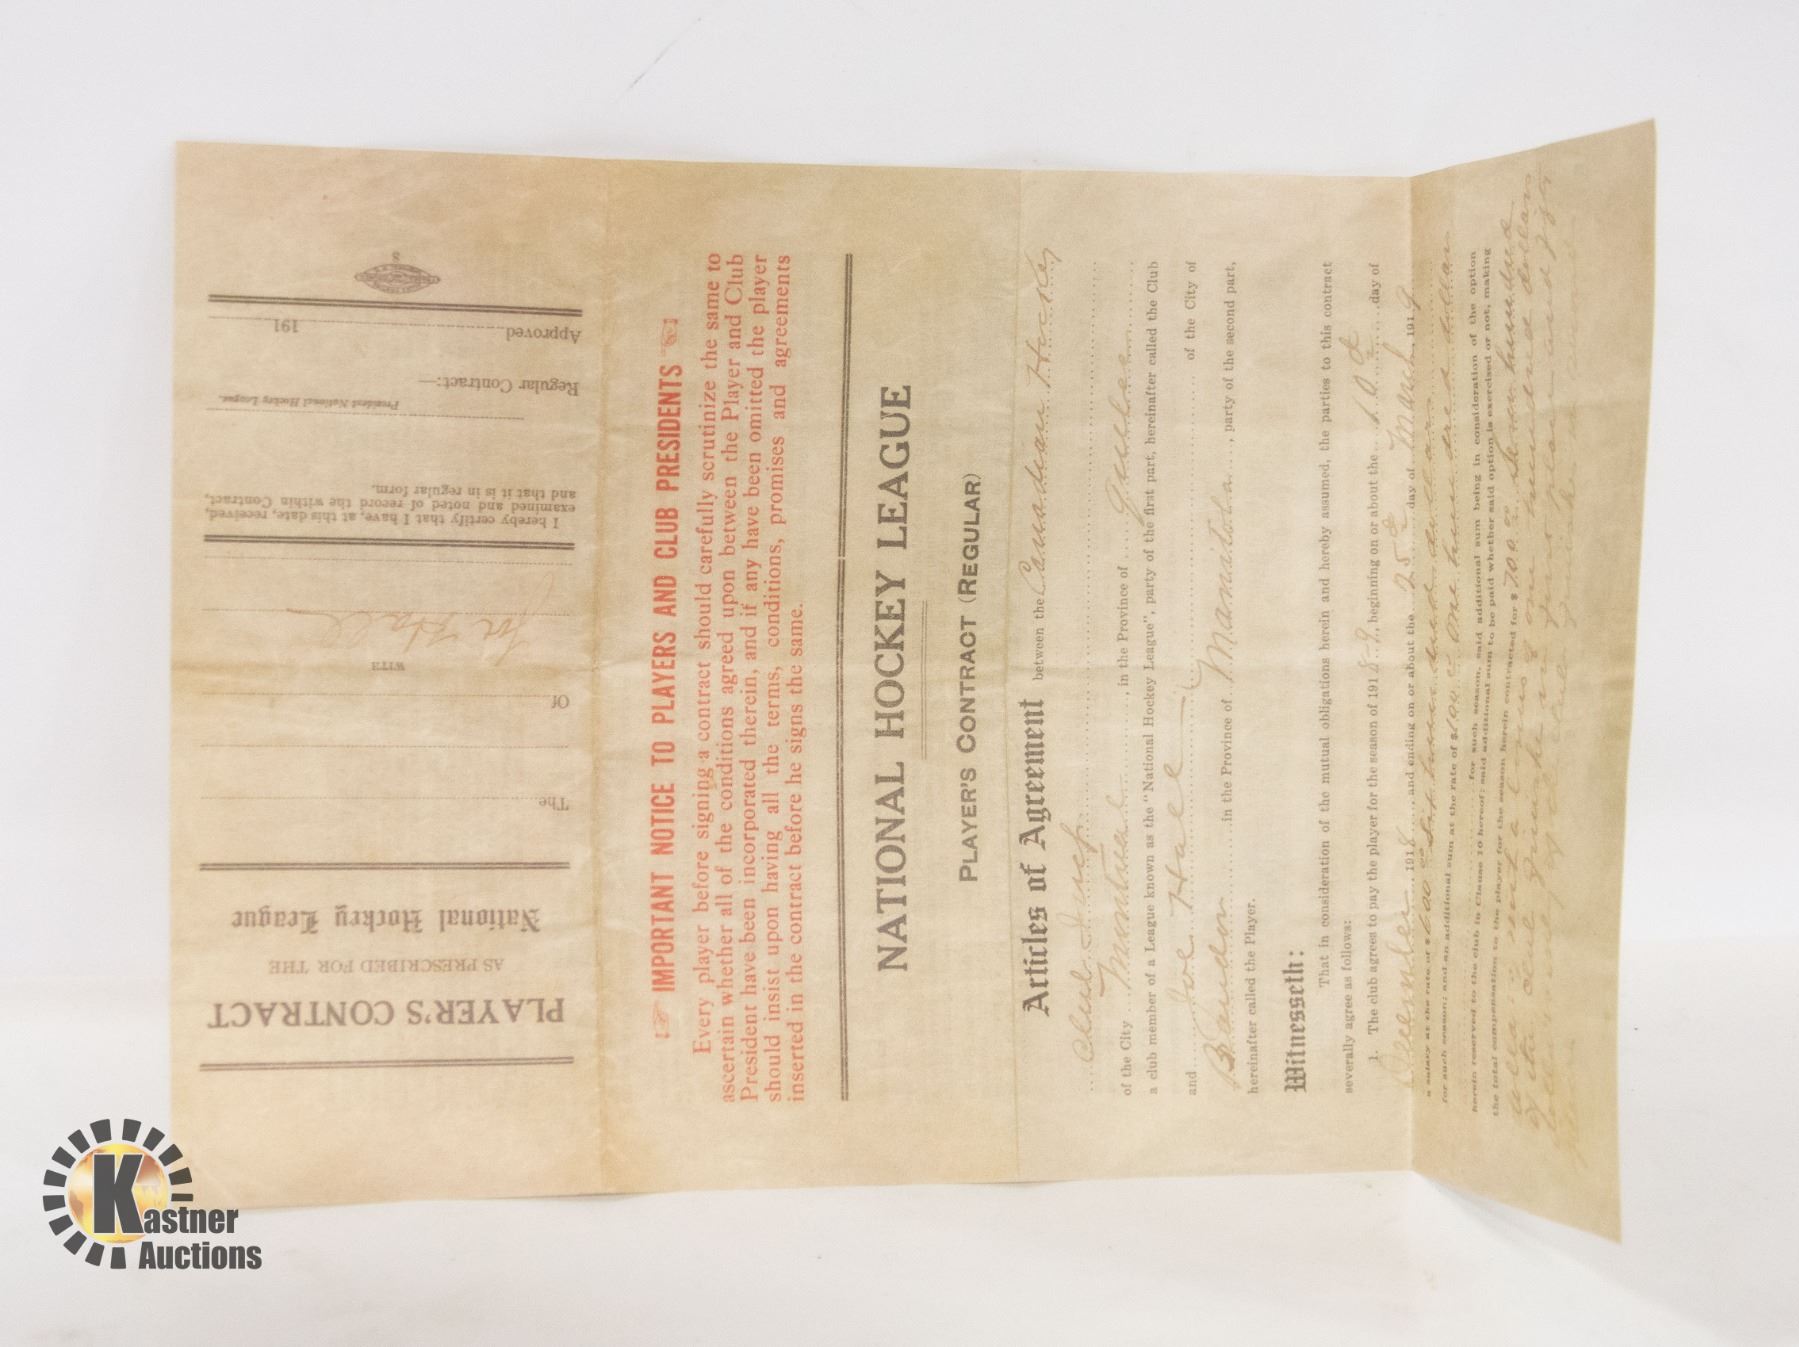 PLAYER'S CONTRACT
AS PRESCRIBED FOR THE
National Hockey League
The
Of
WITH
Joe Hall
I hereby certify that I have, at this date, received,
examined and noted of record the within Contract,
and that it is in regular form.
President National Hockey League.
Regular Contract:—
Approved 191
IMPORTANT NOTICE TO PLAYERS AND CLUB PRESIDENTS
Every player before signing a contract should carefully scrutinize the same to
ascertain whether all of the conditions agreed upon between the Player and Club
President have been incorporated therein, and if any have been omitted the player
should insist upon having all the terms, conditions, promises and agreements
inserted in the contract before he signs the same.
NATIONAL HOCKEY LEAGUE
PLAYER'S CONTRACT (REGULAR)
Articles of Agreement between the Canadian Hockey
Club
of the City Montreal, in the Province of Quebec
a club member of a League known as the "National Hockey League", party of the first part, hereinafter called the Club
and Joe Hall of the City of
Brandon in the Province of Manitoba, party of the second part,
hereinafter called the Player.
Witnesseth:
That in consideration of the mutual obligations herein and hereby assumed, the parties to this contract
severally agree as follows:
1. The club agrees to pay the player for the season of 1918-9, beginning on or about the day of
December 1918, and ending on or about the 25th day of March 1919
a salary at the rate of $600 00 Six hundred dollars
for such season; and an additional sum at the rate of $100 One hundred dollars
for such season, said additional sum being in consideration of the option
herein reserved to the club in Clause 10 hereof; said additional sum to be paid whether said option is exercised or not, making
the total compensation to the player for the season herein contracted for $700 Seven hundred
dollars and a bonus of one hundred dollars
if the club
Kastner
Auctions